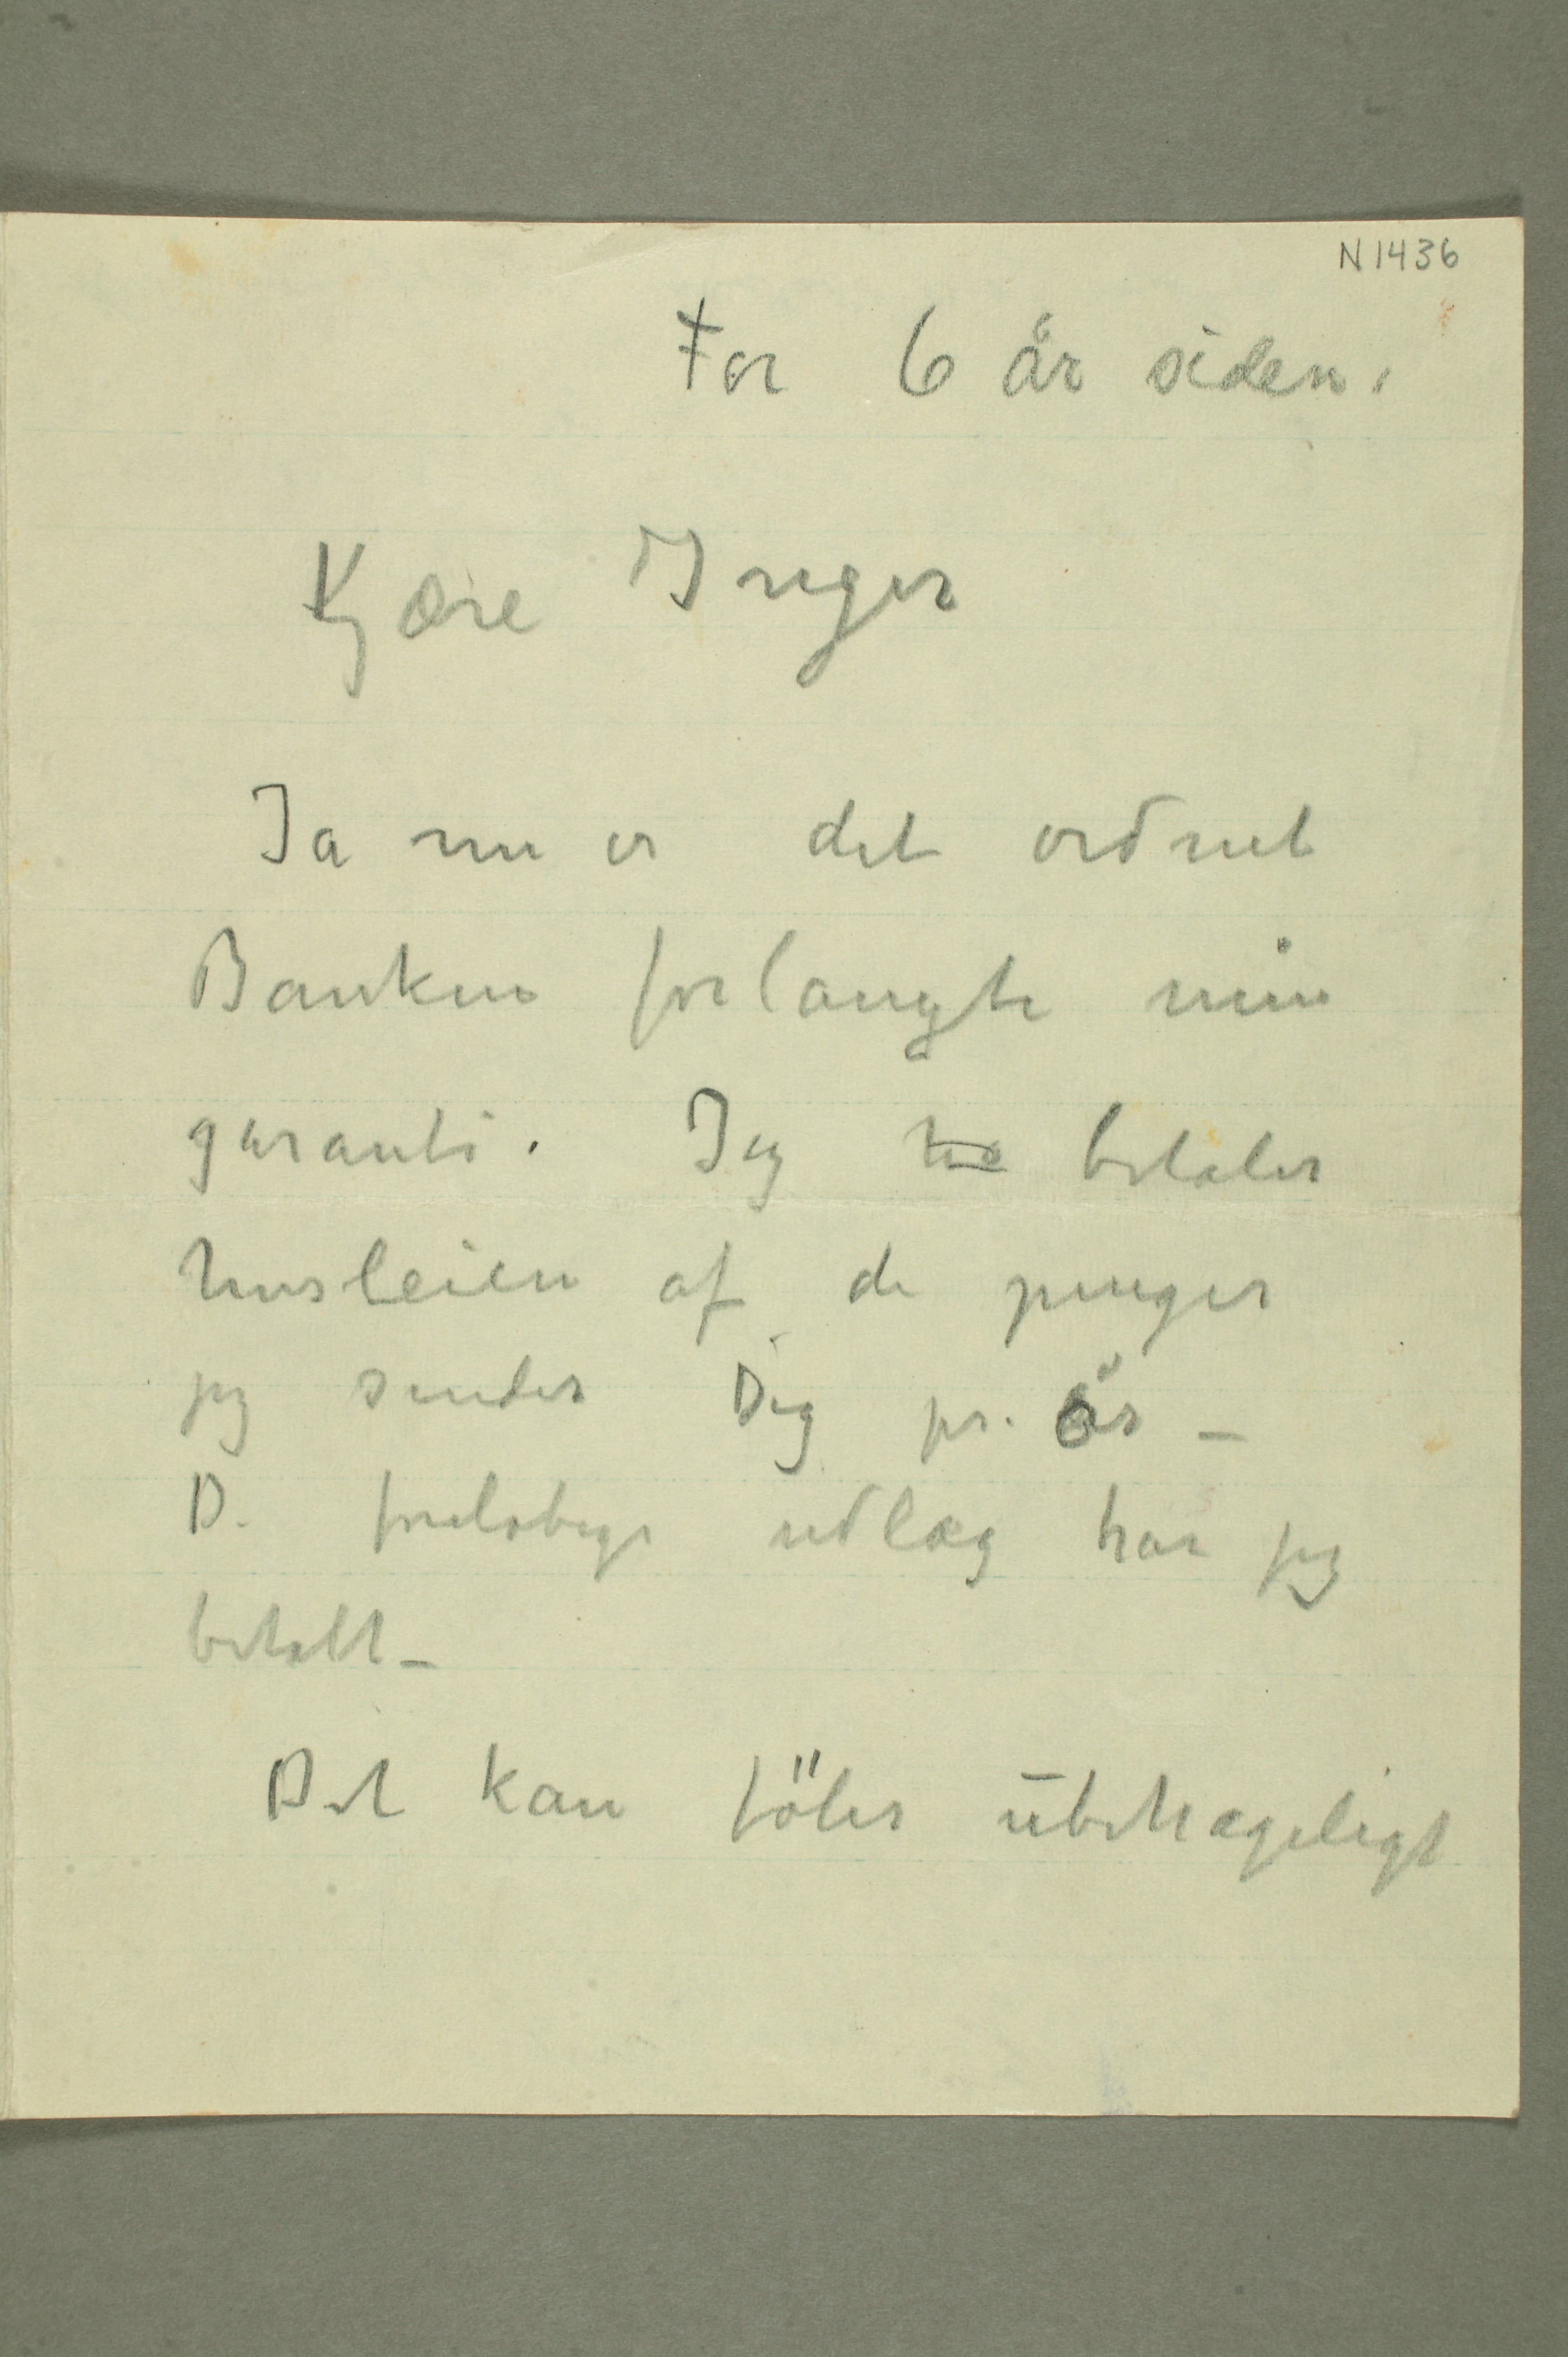 N 1436
For 6 år siden.
Kjære Inger
Ja nu er det ordnet
Banken forlangte min
garanti. Jeg betaler
husleien af de penger
jeg sender Dig pr. år –
D. foreløbige udlæg har jeg
betalt –
Det kan föles übehageligt